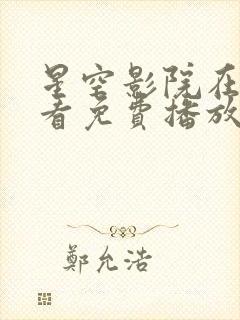 星空影院在
看免費播放
鄭允浩